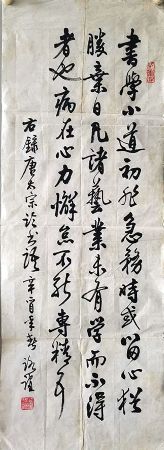 書學小道初非急務時或留心猶
勝棄日凡諸藝業未有學而不得
者也病在心力懈怠不能專精耳
右錄唐太宗論書語辛酉年春